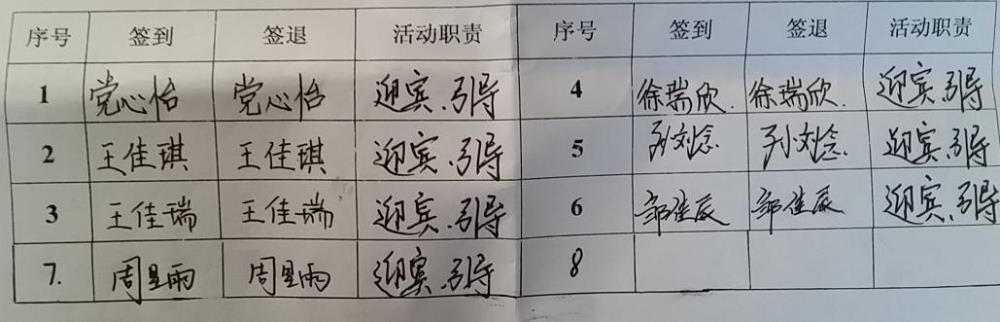 序号 签到 签退 活动职责 序号 签到 签退 活动职责
1 党心怡 党心怡 迎宾.引导 4 徐瑞欣. 徐瑞欣. 迎宾.引导
2 王佳琪 王佳琪 迎宾.引导 5 孙刘念 孙刘念 迎宾.引导
3 王佳瑞 王佳瑞 迎宾.引导 6 郭佳辰 郭佳辰 迎宾.引导
7. 周星雨 周星雨 迎宾.引导 8